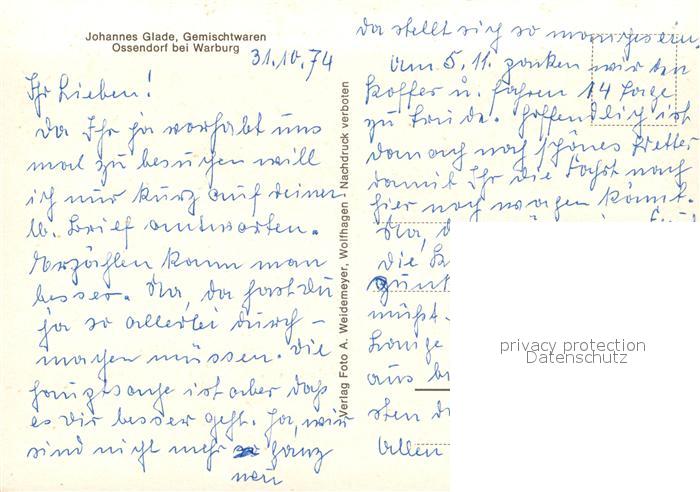 Johannes Glade, Gemischtwaren
Ossendorf bei Warburg
31.10.74
Ihr Lieben!
Da Ihr ja vorhabt uns
mal zu besuchen will
ich nur kurz auf deinen
lb. Brief antworten.
Erzählen kann man
besser. Na, da hast Du
ja so allerlei durch-
machen müssen. Die
Hauptsache ist aber daß
es Dir besser geht. Ja, wir
sind nicht mehr ganz
neu
Verlag Foto A. Weidemeyer, Wolfhagen - Nachdruck verboten
da stellt sich so manches ein.
Am 5.11. packen wir den
Koffer u. fahren 14 Tage
zu Trude. Hoffendlich ist
danach noch schönes Wetter
damit Ihr die Fahrt nach
hier noch wagen könnt.
Na, d
die
müßt
aus
sten d
Allen
privacy protection
Datenschutz